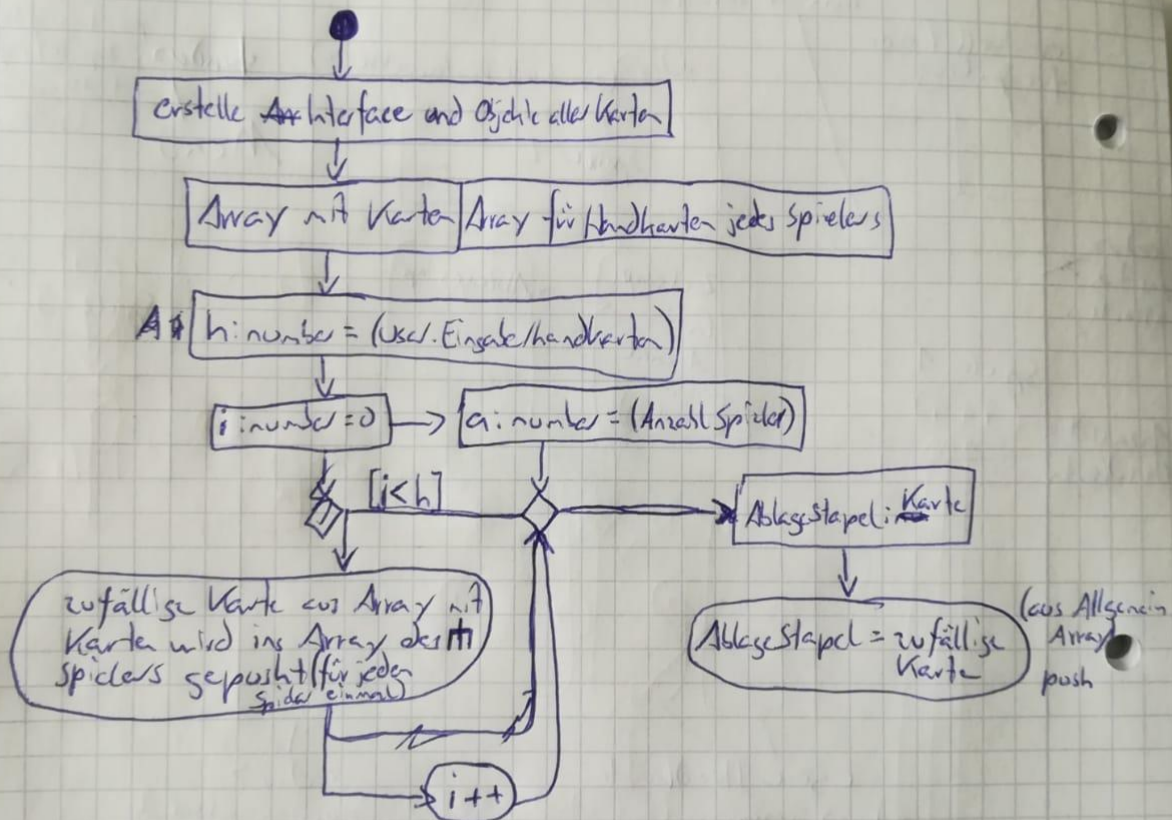 erstelle Interface und Objekte aller Karten
Array mit Karten
Array für Handkarten jedes Spielers
h: number = (User.Eingabe/handkarten)
i: number = 0
a: number = (Anzahl Spieler)
[i<h]
Ablagestapel: Karte
zufällige Karte aus Array mit
Karten wird ins Array des
Spielers gepusht (für jeden
Spieler einmal)
Ablagestapel = zufällige
Karte
(aus Allgemein
Array
push
i++